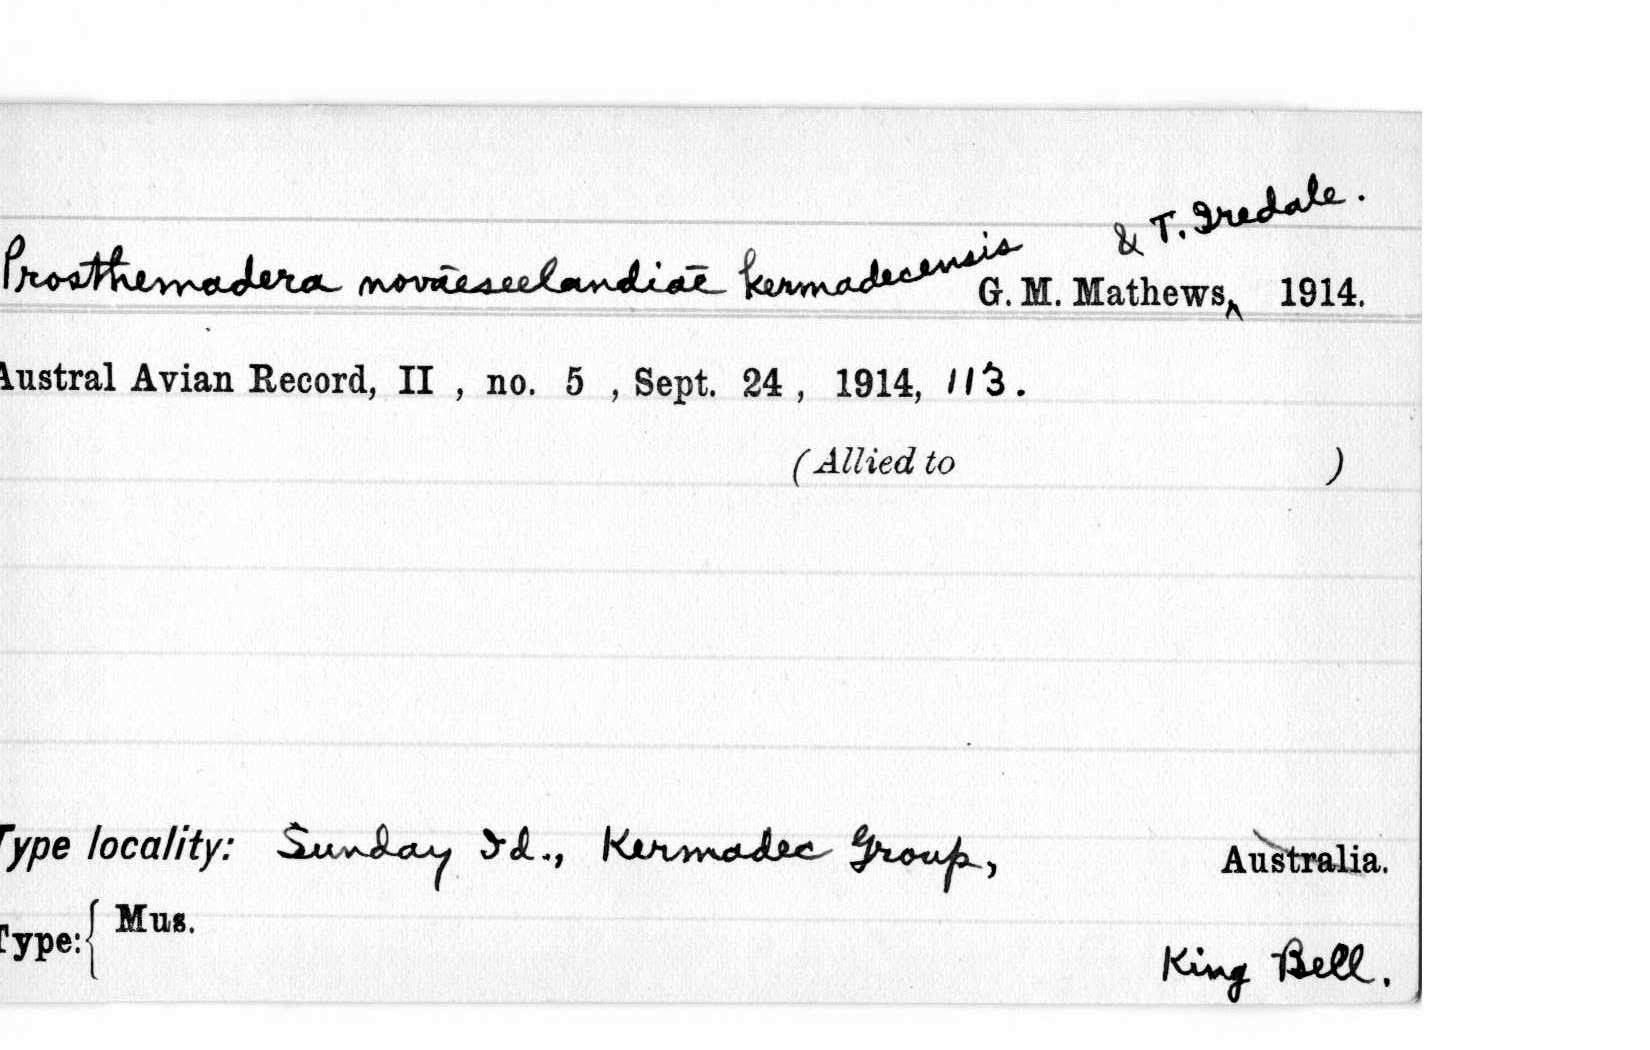 Prosthemadera novaeseelandiae kermadecensis G. M. Mathews & T. Iredale. 1914.
Austral Avian Record, II , no. 5 , Sept. 24 , 1914, 113.
(Allied to )
Type locality: Sunday Id., Kermadec Group, Australia.
Type: { Mus.
King Bell.